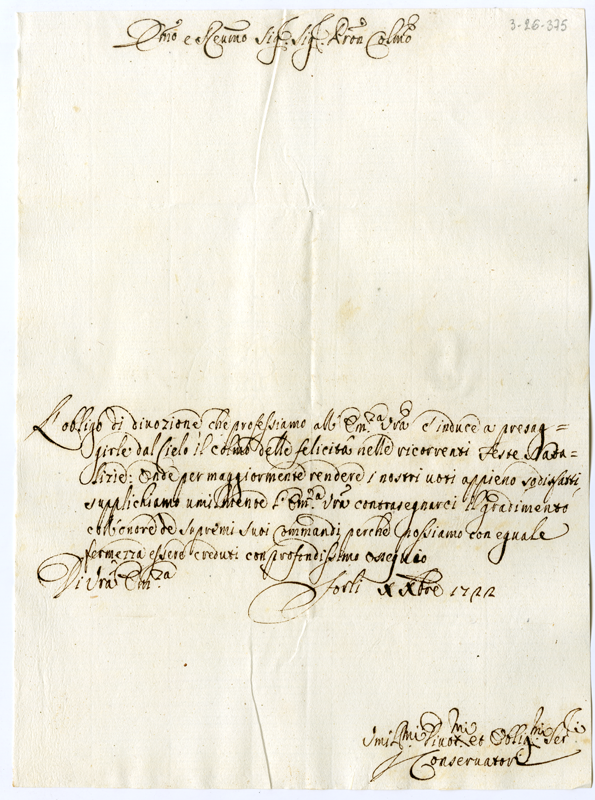 3-26-375
Emo e Remo Sig.r Sig.r Pron Colmo
L'obligo di divozione che professiamo all Em.za Vrã c'induce a presag=
girle dal Cielo il colmo delle felicità nelle ricorrenti Feste Nata=
lizie: Onde per maggiormente rendere i nostri voti appieno sodisfatti,
supplichiamo umilmente l'Em.za Vrã contrasegnarci il gradimento
coll'onore de supremi suoi Commandi perche possiamo con eguale
fermezza essere creduti con profondissimo ossequio
Di Vrã Em.za Forlì X Xbre 1722
Umil.mi Divot.mi et Oblig.mi Ser.i
Conservatori